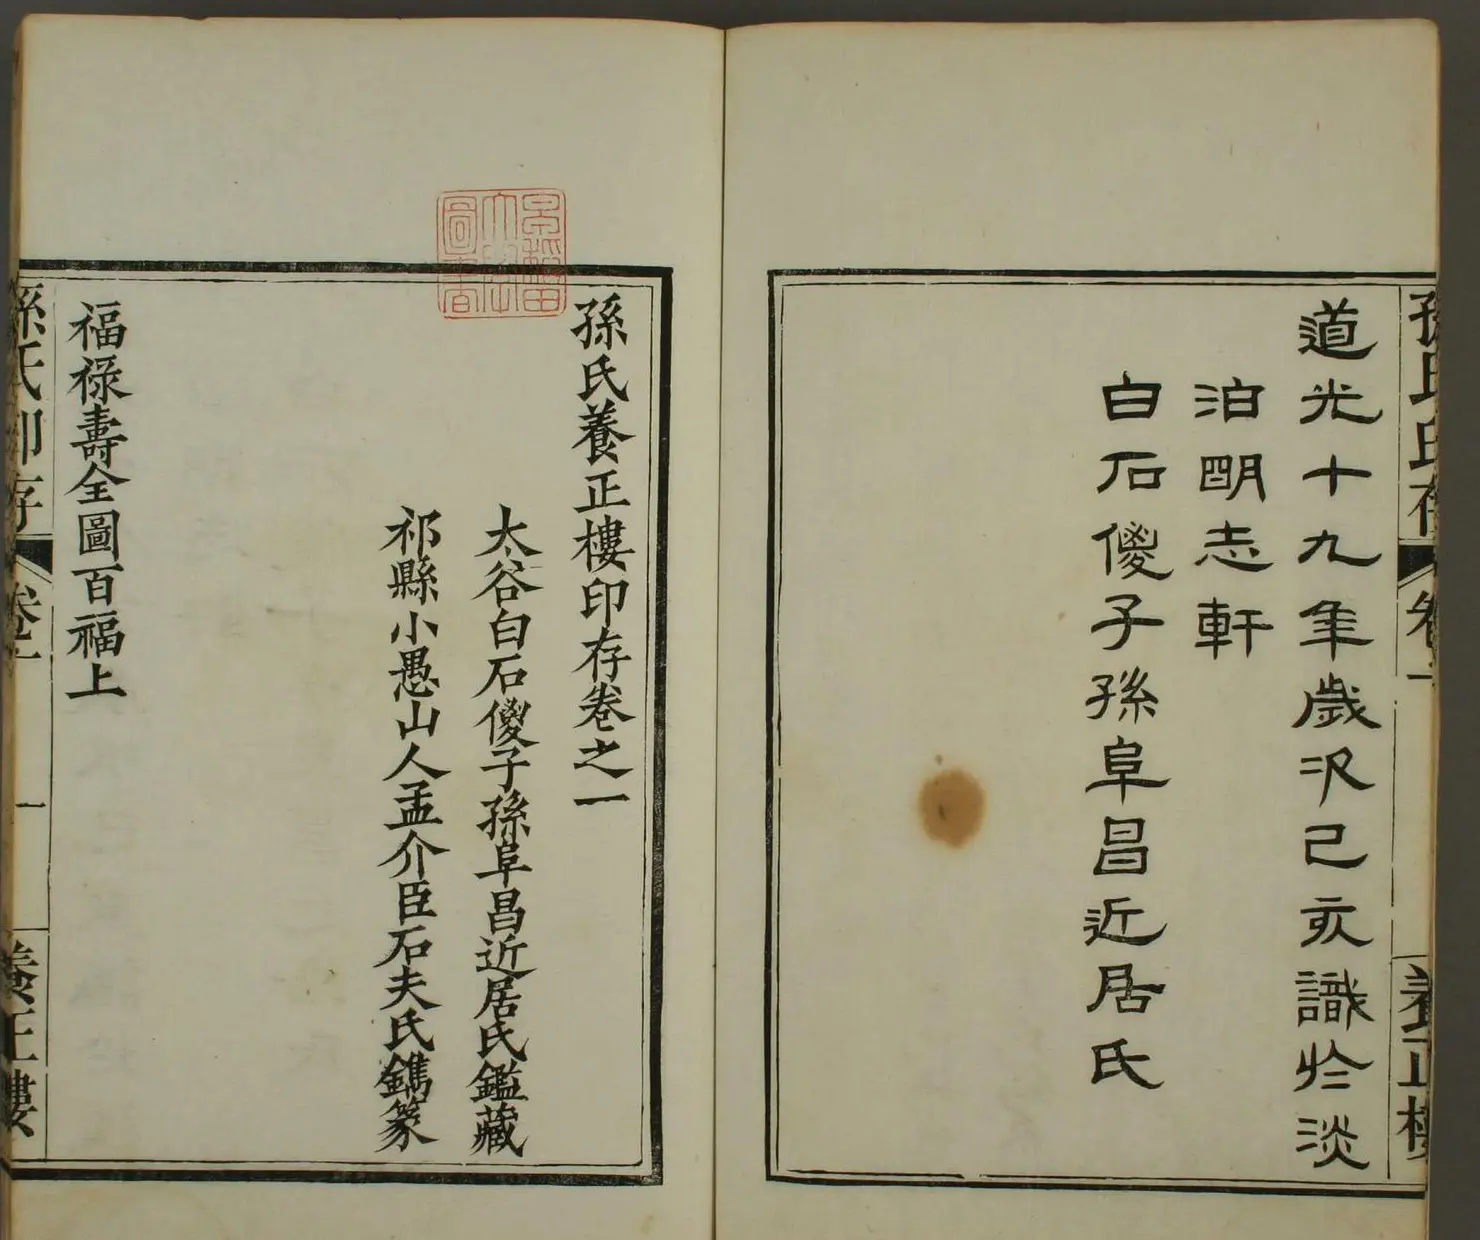 孫氏印存
卷一
養正樓
道光十九年歲次己亥識於淡
泊明志軒
白石傻子孫阜昌近居氏
早稲田
大學
圖書
孫氏養正樓印存卷之一
太谷白石傻子孫阜昌近居氏鑑藏
祁縣小愚山人孟介臣石夫氏鐫篆
福祿壽全圖百福上
孫氏印存
卷一
一
養正樓